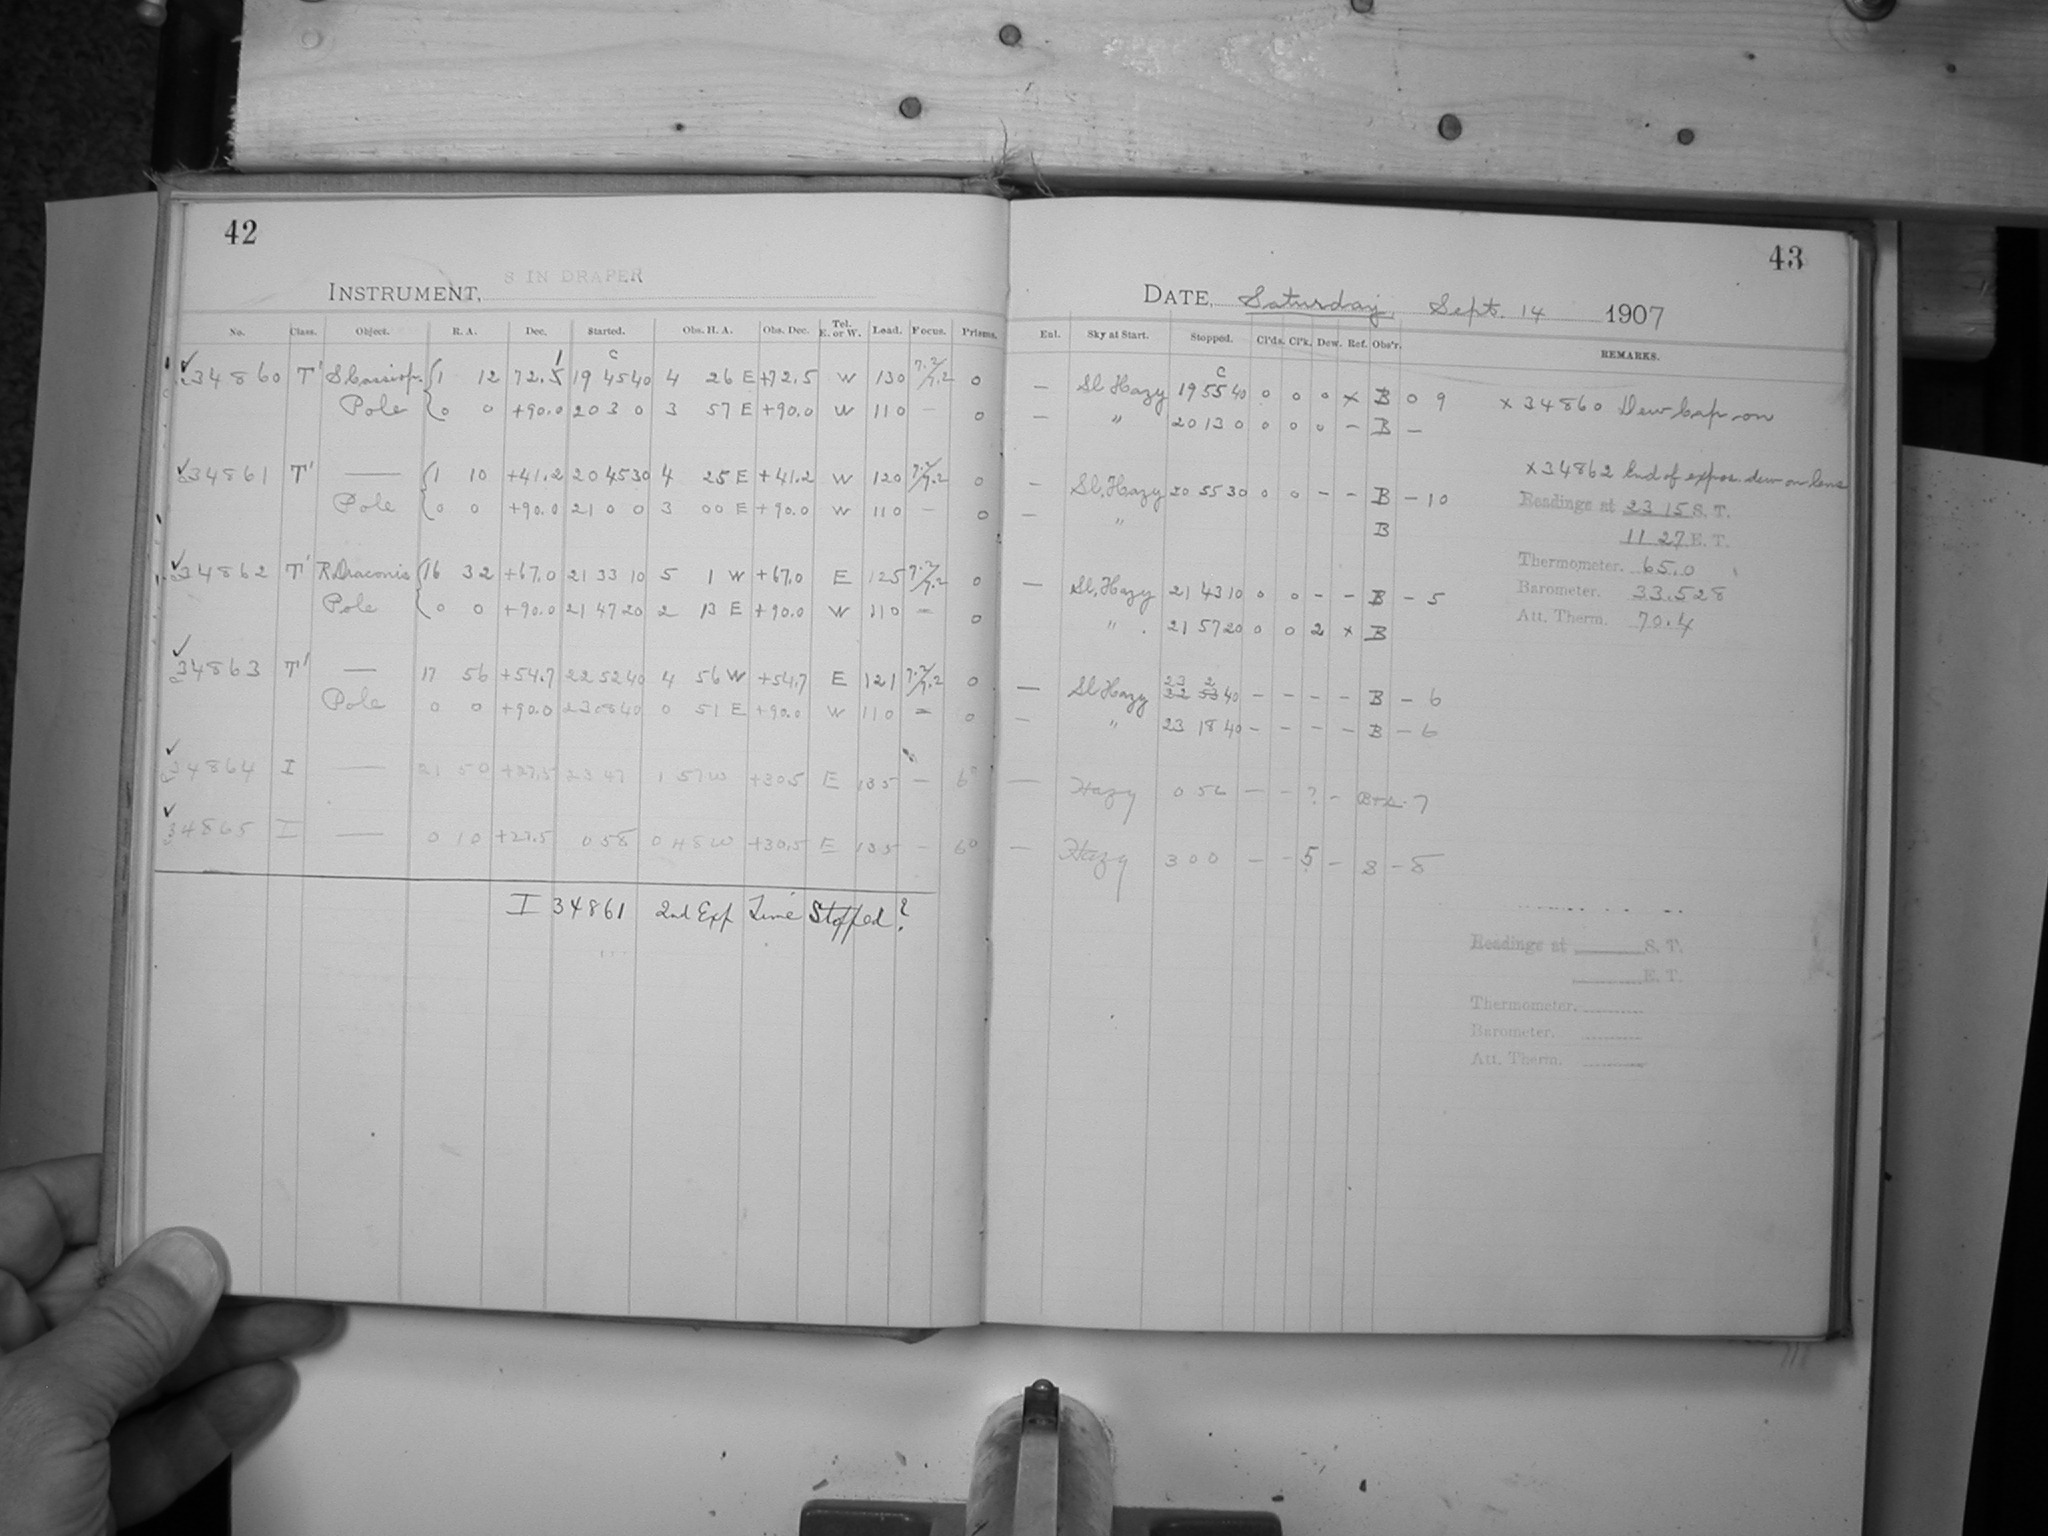 42
8 IN DRAPER
INSTRUMENT,
No. Class. Object. R. A. Dec. Started. Obs. H. A. Obs. Dec. Tel. E. or W. Lead. Focus. Prisms.
34860 T' S Cassiop. 1 12 72.5 19 45 40 4 26 E +72.5 W 130 7.2/7.2 0
Pole 0 0 +90.0 20 3 0 3 57 E +90.0 W 110 – 0
34861 T' — 1 10 +41.2 20 45 30 4 25 E +41.2 W 120 7.2/7.2 0
Pole 0 0 +90.0 21 0 0 3 00 E +90.0 W 110 – 0
34862 T' R. Draconis 16 32 +67.0 21 33 10 5 1 W +67.0 E 125 7.2/7.2 0
Pole 0 0 +90.0 21 47 20 2 13 E +90.0 W 110 – 0
34863 T' — 17 56 +54.7 22 52 40 4 56 W +54.7 E 121 7.2/7.2 0
Pole 0 0 +90.0 23 08 40 0 51 E +90.0 W 110 – 0
34864 I — 21 50 +27.5 23 47 1 57 W +30.5 E 135 – 60
34865 I — 0 10 +27.5 0 58 0 48 W +30.5 E 135 – 60
I 34861 2nd Exp Time Stopped?
43
DATE, Saturday, Sept. 14 1907
Enl. Sky at Start. Stopped. Cl'ds. Cl'k. Dew. Ref. Obs'r. REMARKS.
— Sl Hazy 19 55 40 0 0 0 x B 0 9 x 34860 Dew Cap on
— " 20 13 0 0 0 0 – B –
— Sl. Hazy 20 55 30 0 0 – – B – 10
— " B
— Sl. Hazy 21 43 10 0 0 – – B – 5
" 21 57 20 0 0 2 x B
— Sl Hazy 23 2 40 – – – – B – 6
— " 23 18 40 – – – – B – 6
— Hazy 0 56 – – ? – 7
— Hazy 3 00 – – 5 – B – 8
x 34862 End of expos. dew on lens
Readings at 23 15 S. T.
11 27 E. T.
Thermometer. 65.0
Barometer. 33.528
Att. Therm. 70.4
Readings at S. T.
E. T.
Thermometer.
Barometer.
Att. Therm.